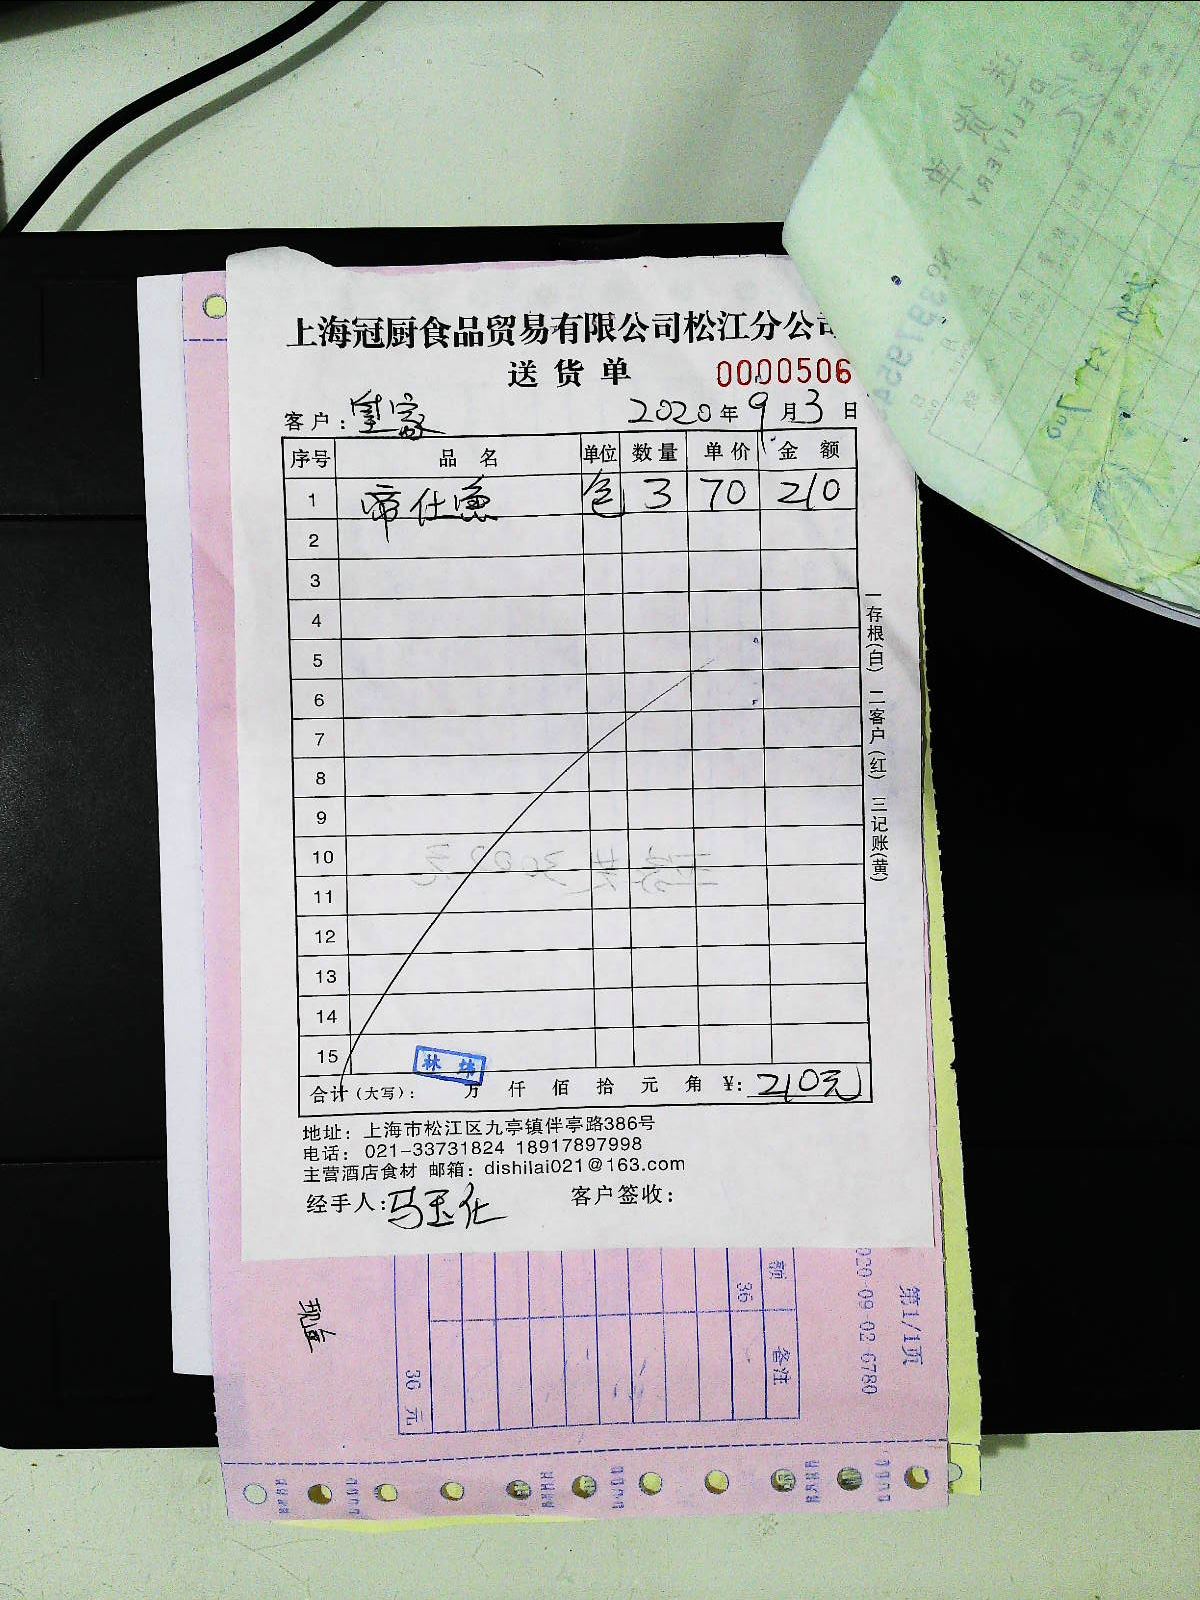 上海冠厨食品贸易有限公司松江分公司
送货单 0000506
客户: 皇家 2020年9月3日
序号 品名 单位 数量 单价 金额
1 帝仕鱼 包 3 70 210
2
3
4
5
6
7
8
9
10
11
12
13
14
15
林炜
合计(大写): 万 仟 佰 拾 元 角 ¥: 210元
地址: 上海市松江区九亭镇伴亭路386号
电话: 021-33731824 18917897998
主营酒店食材 邮箱: dishilai021@163.com
经手人: 马玉仕 客户签收:
一存根(白) 二客户(红) 三记账(黄)
第1/1页
020-09-02 6780
额 备注
36
36 元
送货单
DELIVERY